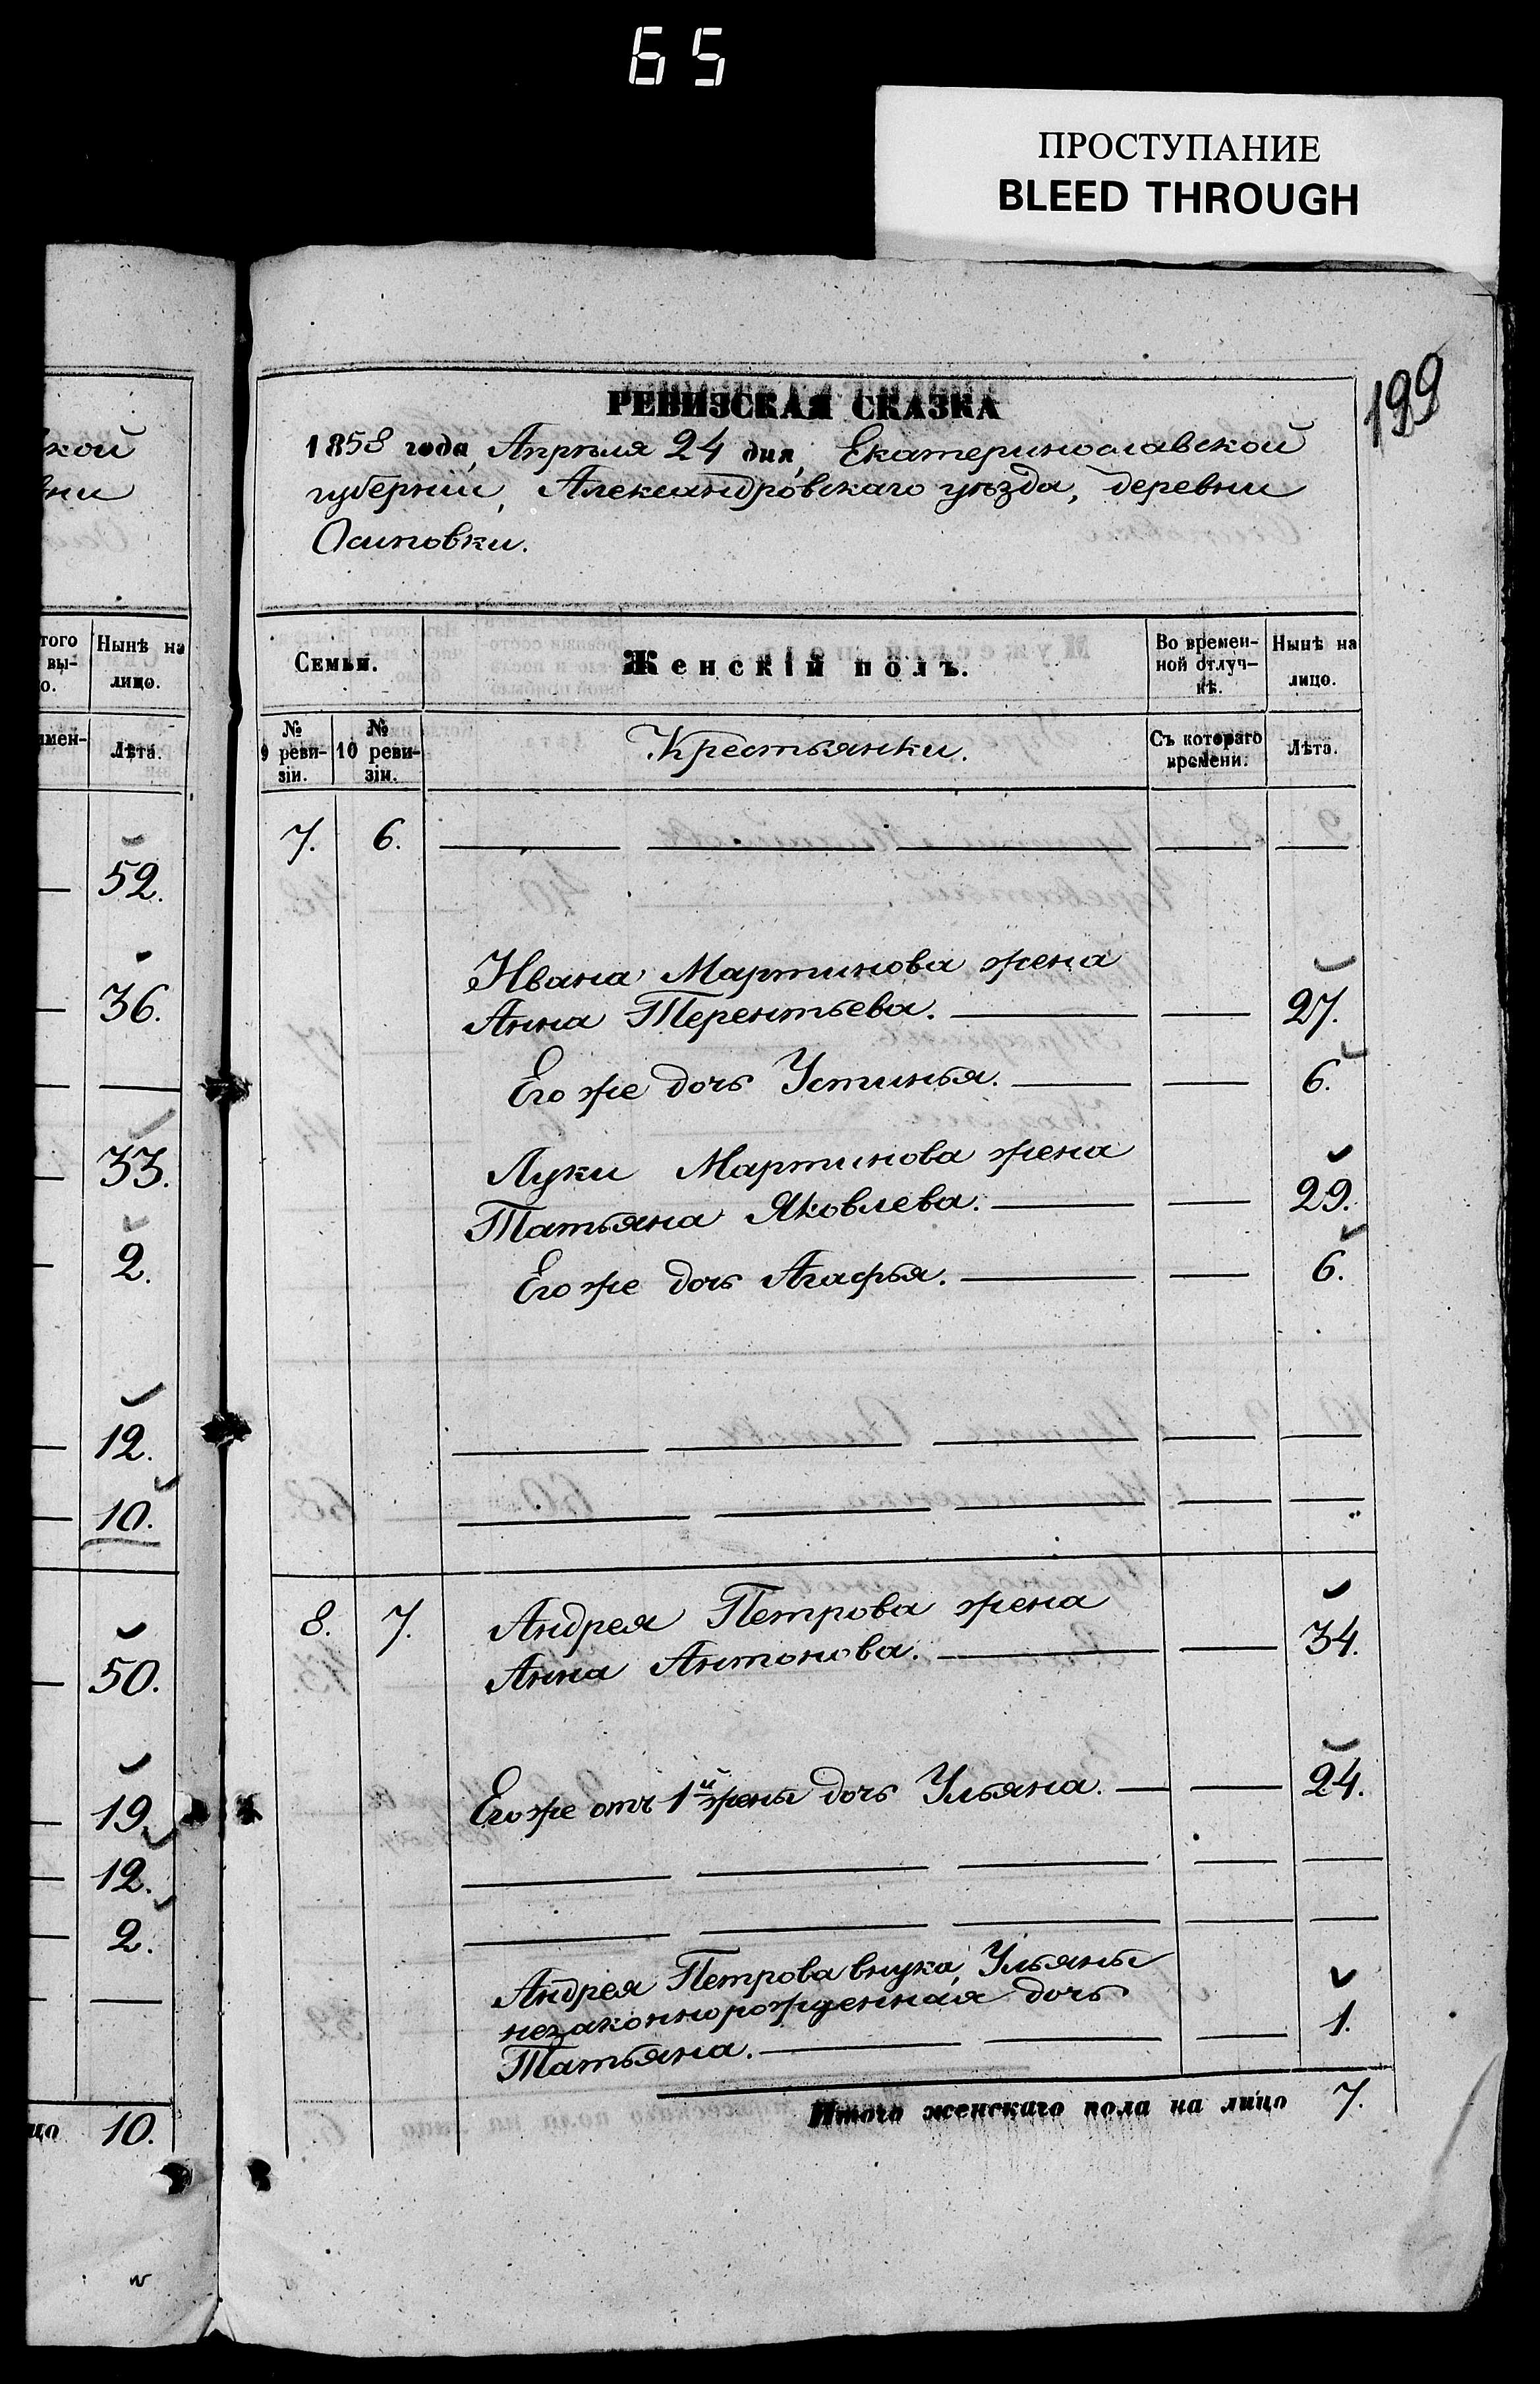 65
ПРОСТУПАНИЕ
BLEED THROUGH
199
РЕВИЗСКАЯ СКАЗКА
1858 года, Апрѣля 24 дня, Екатеринославской
губерніи, Александровскаго уѣзда, деревни
Осиповки.
кой
вни
того вы- о.
Нынѣ на лицо.
Семьи.
Женскій полъ.
Во времен- ной отлуч- кѣ.
Нынѣ на лицо.
имен-
Лѣта.
№ 9 реви- зіи.
№ 10 реви- зіи.
Крестьянки.
Съ котораго времени.
Лѣта.
52.
36.
33.
2.
12.
10.
50.
19.
12.
2.
цо 10.
7. 6.
Ивана Мартинова жена
Анна Терентьева. 27.
Его же дочь Устинья. 6.
Луки Мартинова жена
Татьяна Яковлева. 29.
Его же дочь Агафья. 6.
8. 7. Андрея Петрова жена
Анна Антонова. 34.
Его же отъ 1й жены дочь Ульяна. 24.
Андрея Петрова внука, Ульяны
незаконнорожденная дочь
Татьяна. 1.
Итого женскаго пола на лицо 7.